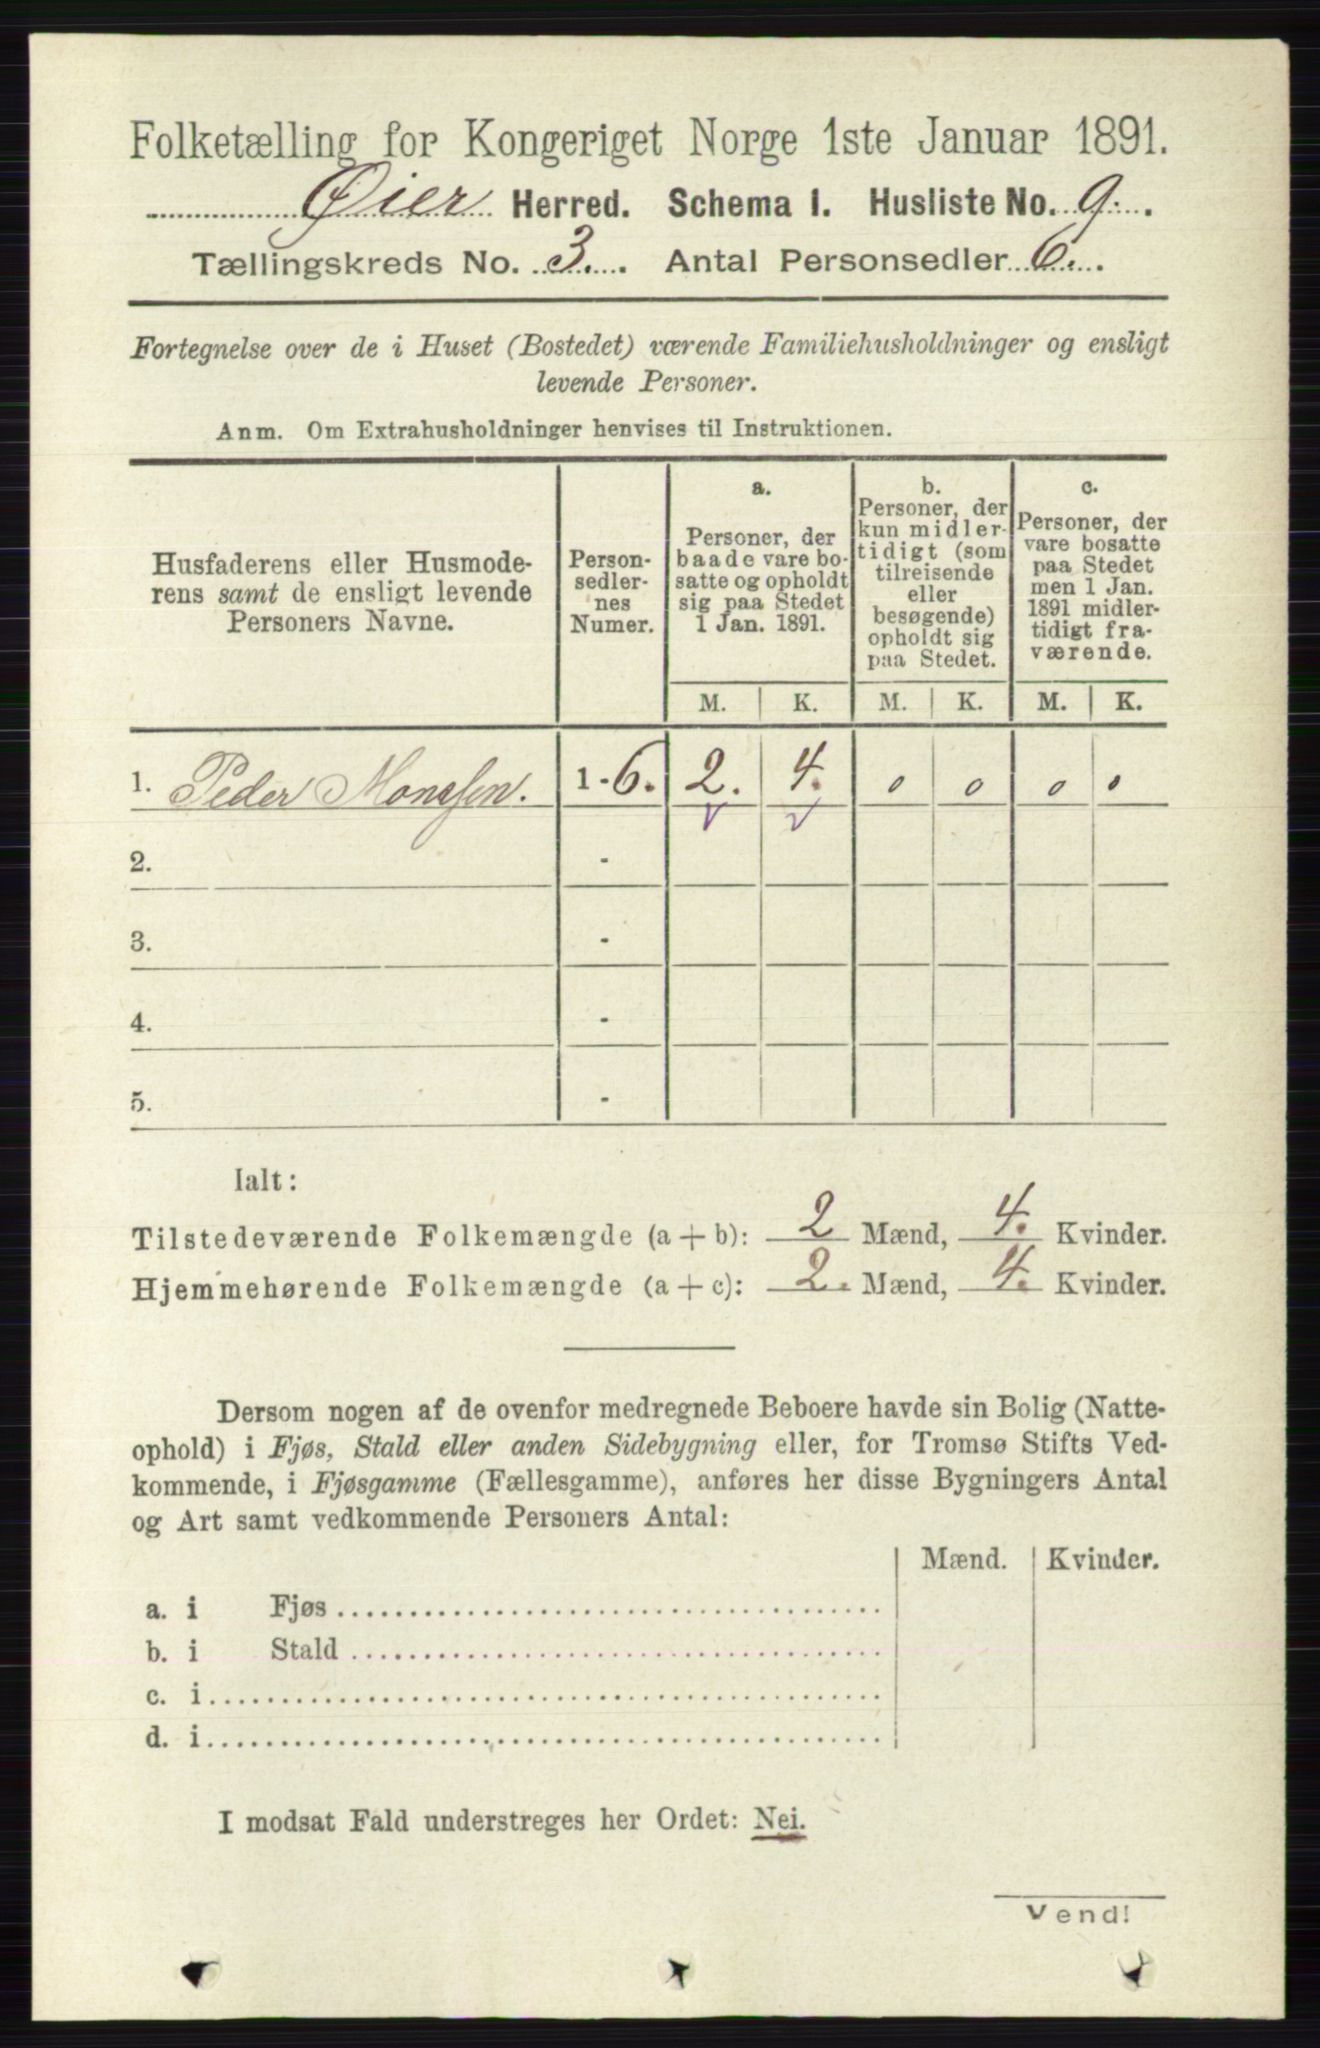 Folketælling for Kongeriget Norge 1ste Januar 1891.
Øier Herred. Schema I. Husliste No. 9.
Tællingskreds No. 3. Antal Personsedler 6.
Fortegnelse over de i Huset (Bostedet) værende Familiehusholdninger og ensligt
levende Personer.
Anm. Om Extrahusholdninger henvises til Instruktionen.
Husfaderens eller Husmode-
rens samt de ensligt levende
Personers Navne.
Person-
sedler-
nes
Numer.
a.
Personer, der
baade vare bo-
satte og opholdt
sig paa Stedet
1 Jan. 1891.
b.
Personer, der
kun midler-
tidigt (som
tilreisende
eller
besøgende)
opholdt sig
paa Stedet.
c.
Personer, der
vare bosatte
paa Stedet
men 1 Jan.
1891 midler-
tidigt fra-
værende.
M. K. M. K. M. K.
1. Peder Monssen. 1 - 6. 2. 4. 0 0 0 0
2. -
3. -
4. -
5. -
Ialt:
Tilstedeværende Folkemængde (a + b): 2 Mænd, 4. Kvinder.
Hjemmehørende Folkemængde (a + c): 2. Mænd, 4. Kvinder.
Dersom nogen af de ovenfor medregnede Beboere havde sin Bolig (Natte-
ophold) i Fjøs, Stald eller anden Sidebygning eller, for Tromsø Stifts Ved-
kommende, i Fjøsgamme (Fællesgamme), anføres her disse Bygningers Antal
og Art samt vedkommende Personers Antal:
Mænd. Kvinder.
a. i Fjøs
b. i Stald
c. i
d. i
I modsat Fald understreges her Ordet: Nei.
Vend!